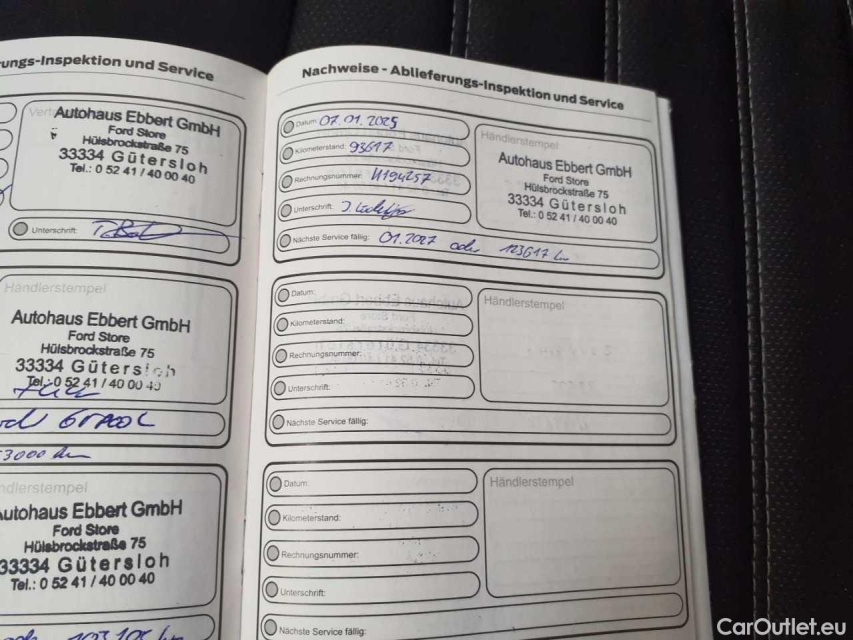 ungs-Inspektion und Service
Autohaus Ebbert GmbH
Ford Store
Hülsbrockstraße 75
33334 Gütersloh
Tel.: 0 52 41 / 40 00 40
Unterschrift:
Händlerstempel
Autohaus Ebbert GmbH
Ford Store
Hülsbrockstraße 75
33334 Gütersloh
Tel.: 0 52 41 / 40 00 40
3000 km
ndlerstempel
utohaus Ebbert GmbH
Ford Store
Hülsbrockstraße 75
33334 Gütersloh
Tel.: 0 52 41 / 40 00 40
Nachweise - Ablieferungs-Inspektion und Service
Datum: 07.01.2025
Kilometerstand: 93617
Rechnungsnummer: 4194257
Unterschrift:
Nächste Service fällig: 01.2027 oder 123617 km
Händlerstempel
Autohaus Ebbert GmbH
Ford Store
Hülsbrockstraße 75
33334 Gütersloh
Tel.: 0 52 41 / 40 00 40
Datum:
Kilometerstand:
Rechnungsnummer:
Unterschrift:
Nächste Service fällig:
Händlerstempel
Datum:
Kilometerstand:
Rechnungsnummer:
Unterschrift:
Nächste Service fällig:
Händlerstempel
CarOutlet.eu